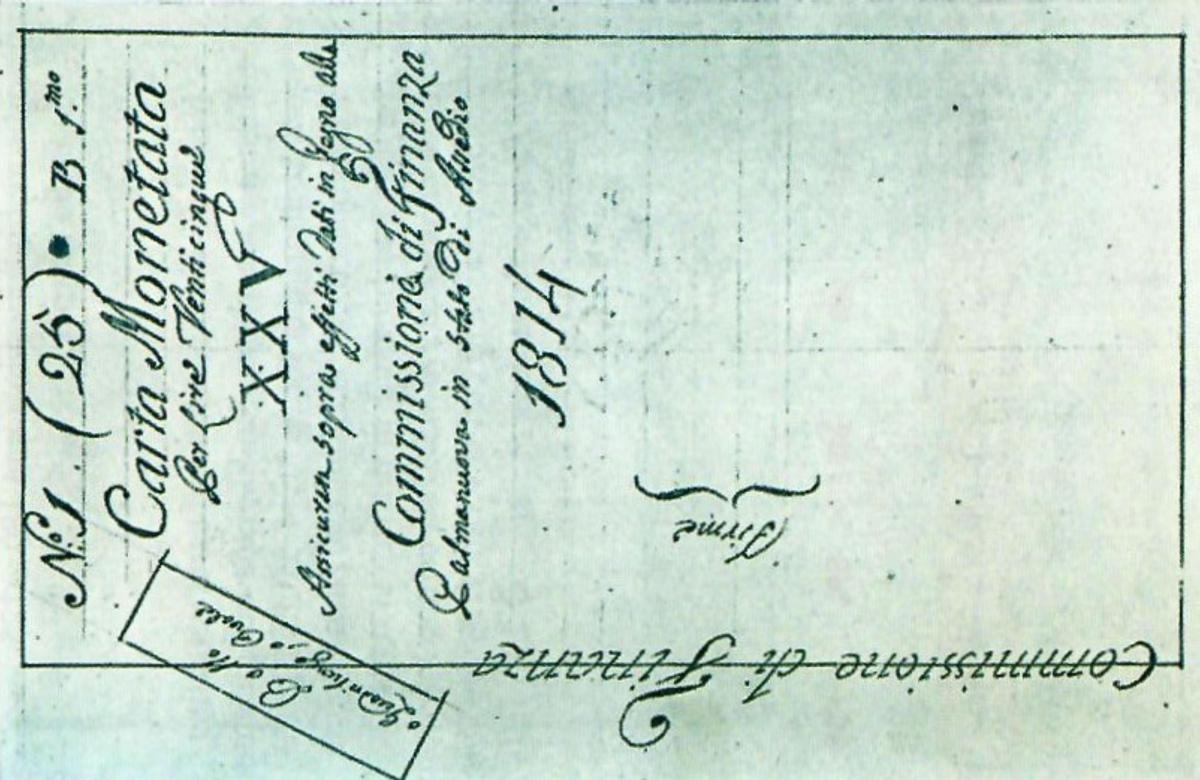 N.º 1 (25) • B 1mo
Carta Monetata
Per Lire Venticinque
XXV
sopra effetti dati in pegno alla
Commissione di Finanza
Palmanuova in stato di Assedio
1814
Firme
Commissione di Finanza